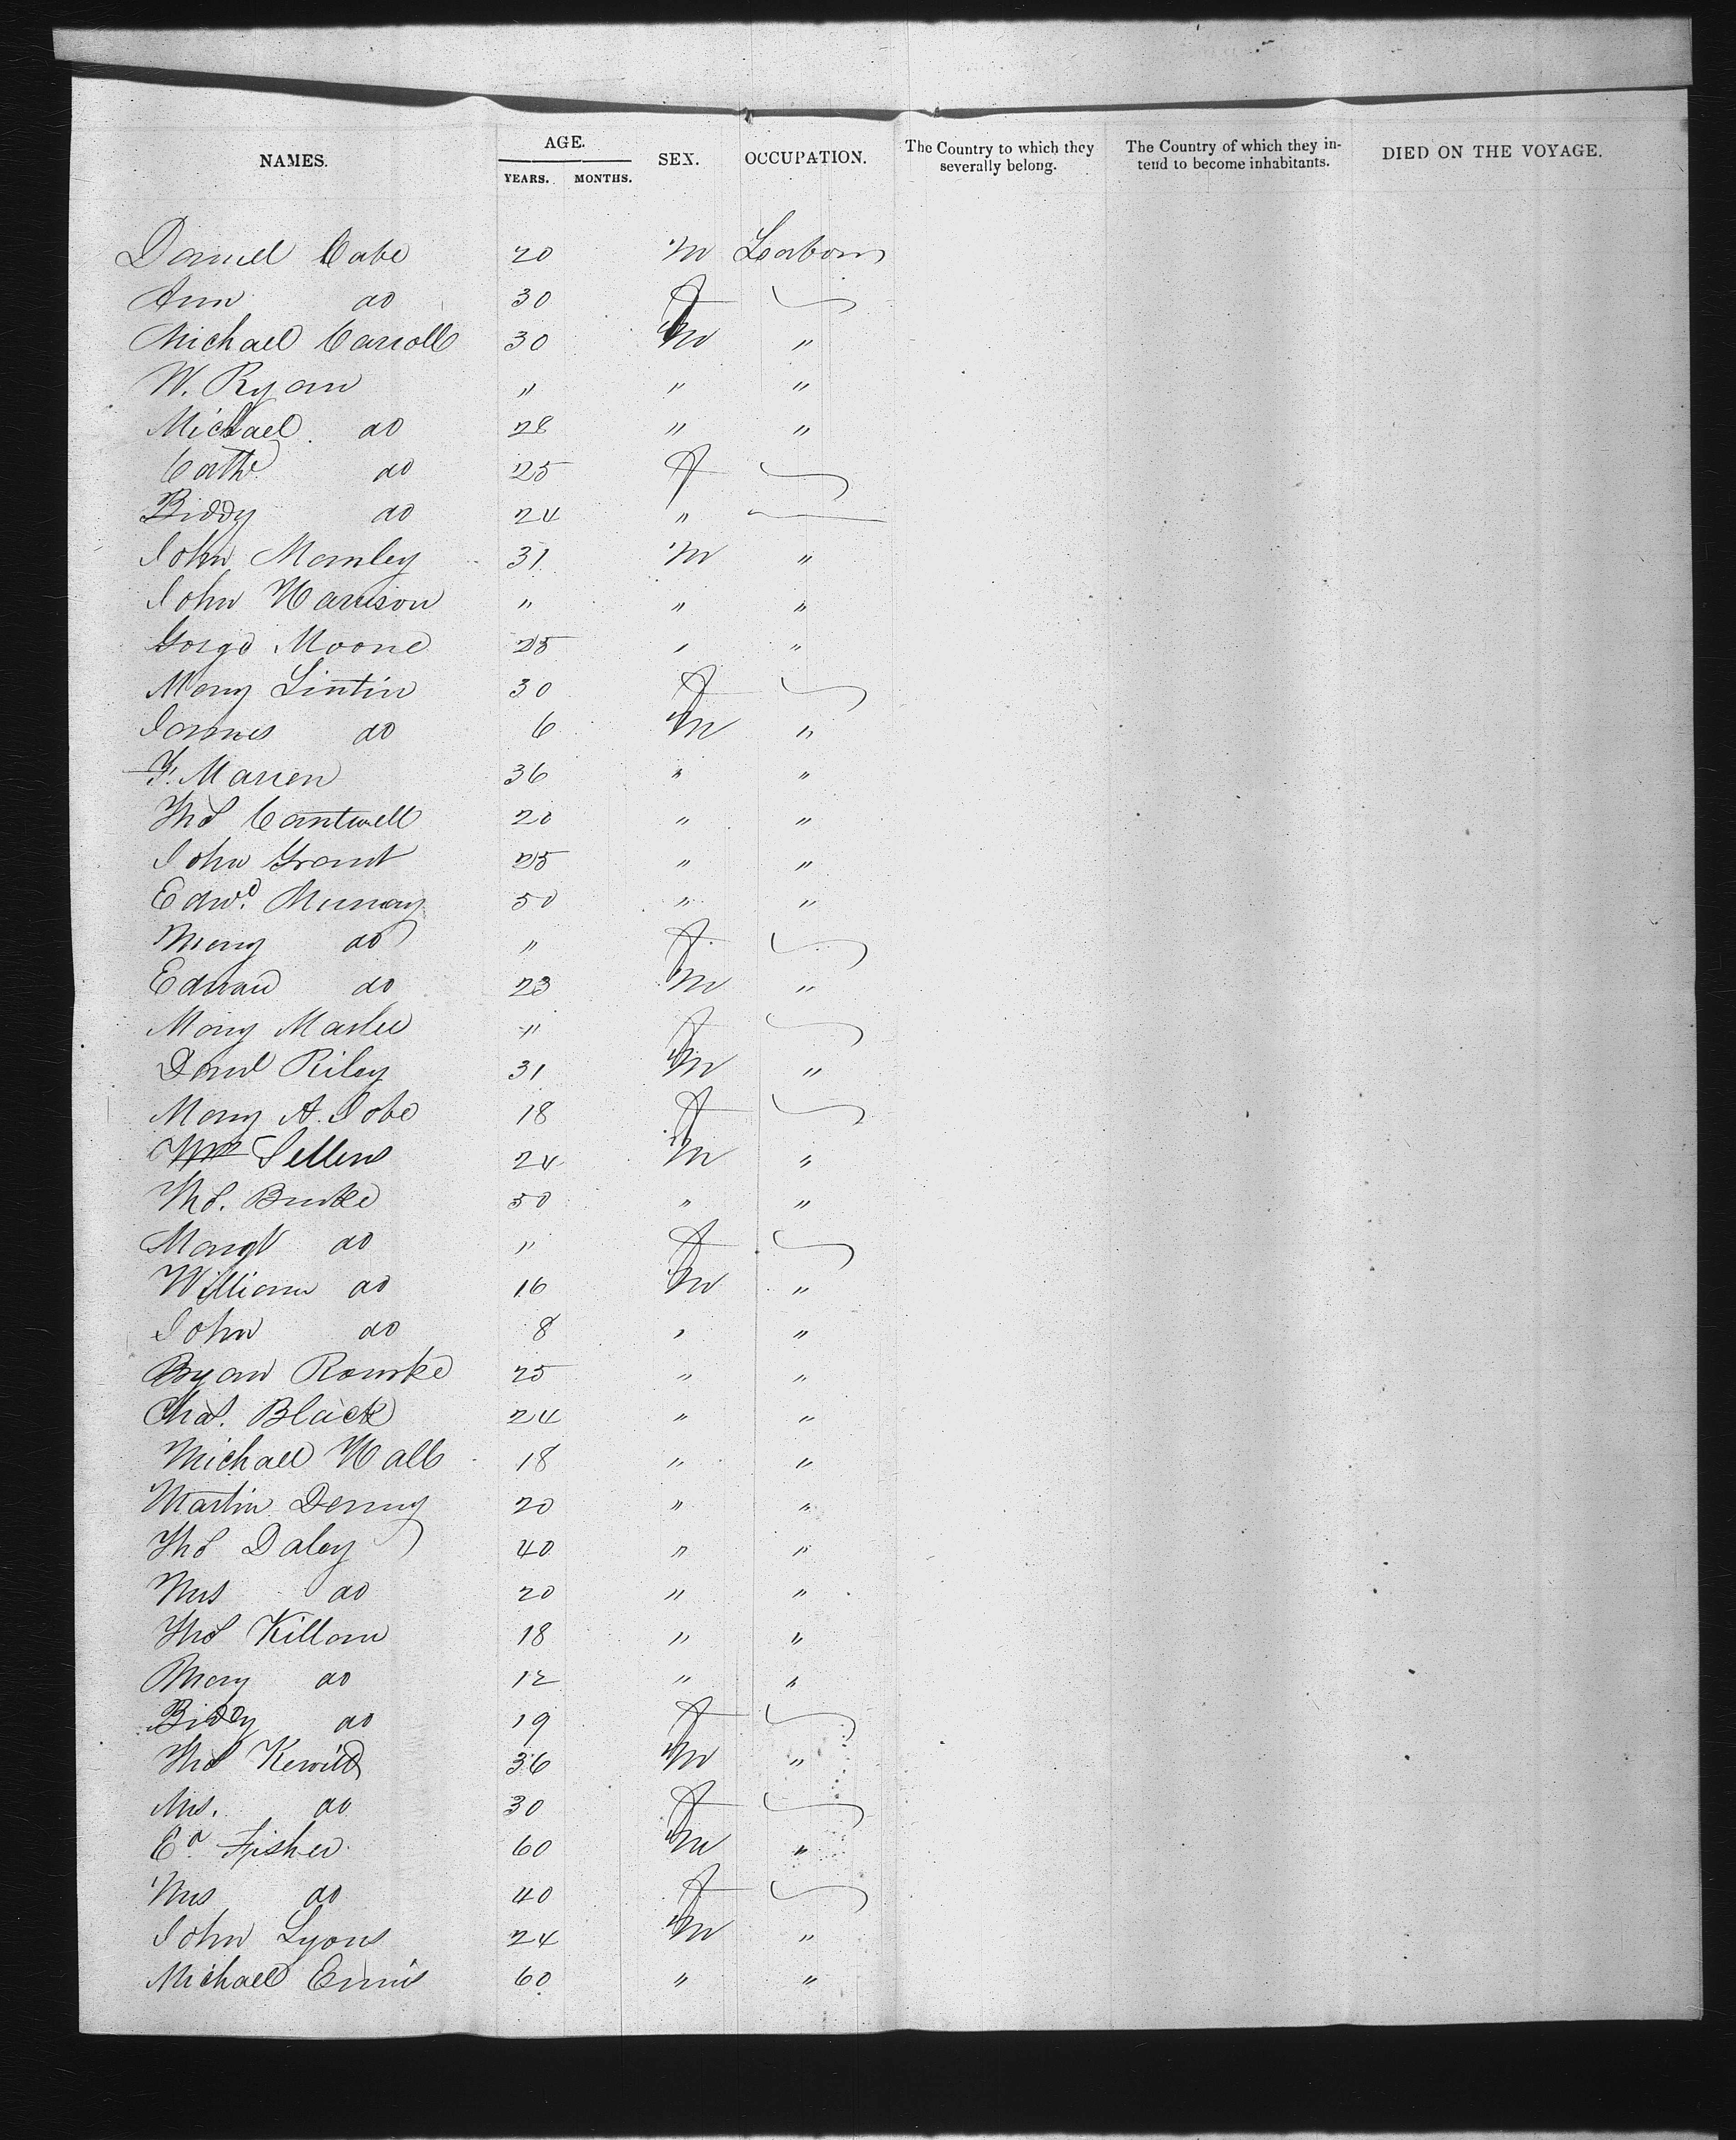 NAMES. AGE. SEX. OCCUPATION. The Country to which they severally belong. The Country of which they intend to become inhabitants. DIED ON THE VOYAGE.
YEARS. MONTHS.
Daniel Cabe 20 M Labour
Ann do 30 F
Michael Carroll 30 M "
W. Ryan " " "
Michael do 28 " "
Cathe do 25 F
Biddy do 24 "
John Manley 31 M "
John Harrison " " "
Gorge Moone 25 " "
Mary Lintin 30 F
James do 6 M "
F. Marren 36 " "
Thos Cantwell 20 " "
John Grant 25 " "
Edwd. Murray 50 " "
Mary do " F
Edward do 23 M "
Mary " F
Danl Riley 31 M "
Mary A. Tobe 18 F
Sellens 24 M "
Thos. Burke 50 " "
Margt do " F
William do 16 M "
John do 8 " "
Bryan Rourke 25 " "
Chas. Black 24 " "
Michael Hall 18 " "
Martin Denny 20 " "
Thos Daley 40 " "
Mrs do 20 " "
Thos Killam 18 " "
Mary do 12 " "
Biddy do 19 F
Thos 36 M "
Mrs. do 30 F
Ed Fisher 60 M "
Mrs do 40 F
John Lyons 24 M "
Michael Ennis 60 " "